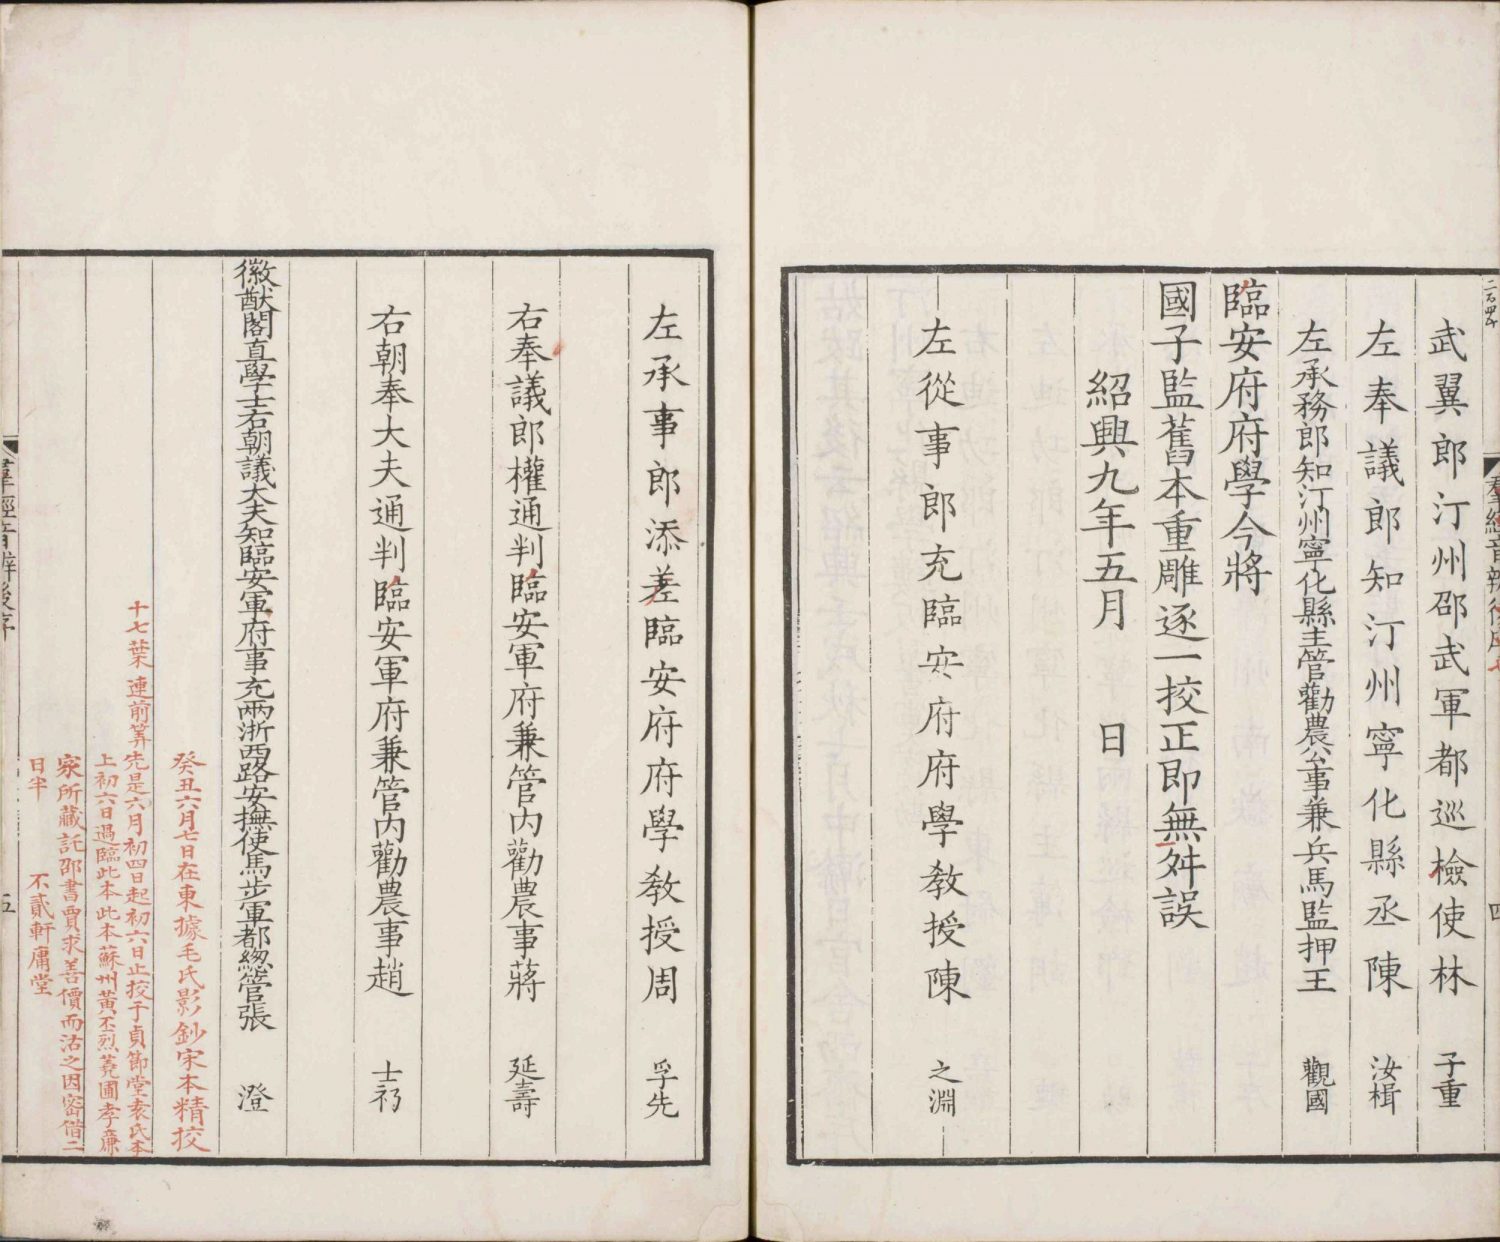 武翼郎汀州邵武軍都巡檢使林 子重
左奉議郎知汀州寧化縣丞陳 汝楫
左承務郎知汀州寧化縣主管勸農公事兼兵馬監押王 觀國
臨安府府學今將
國子監舊本重雕逐一校正即無舛誤
紹興九年五月 日
左從事郎充臨安府府學教授陳 之淵
左承事郎添差臨安府府學教授周 孚先
右奉議郎權通判臨安軍府兼管内勸農事蔣 延壽
右朝奉大夫通判臨安軍府兼管内勸農事趙 士礽
徽猷閣直學士右朝議大夫知臨安軍府事充兩浙西路安撫使馬步軍都緫管張 澄
癸丑六月七日在東據毛氏影鈔宋本精挍
十七葉連前筭先是六月初四日起初六日止挍于貞節堂袁氏本
上初六日過臨此本此本蘇州黃丕烈蕘圃孝廉
家所藏託邵書賈求善價而沽之因密借二
日半 不貳軒庸堂
羣經音辨後序
五
羣經音辨後序
四